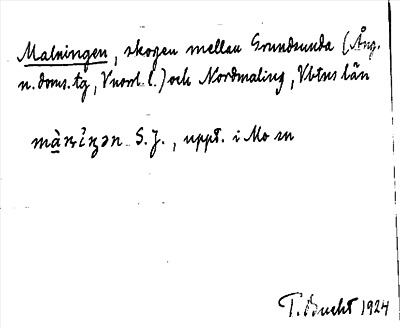 Malningen, skogen mellan Grundsunda (Ång.
n. doms. tg, Vnorl. l.) och Nordmaling, Vbtns län
S.J., uppt. i Mo sn
T. Bucht 1924